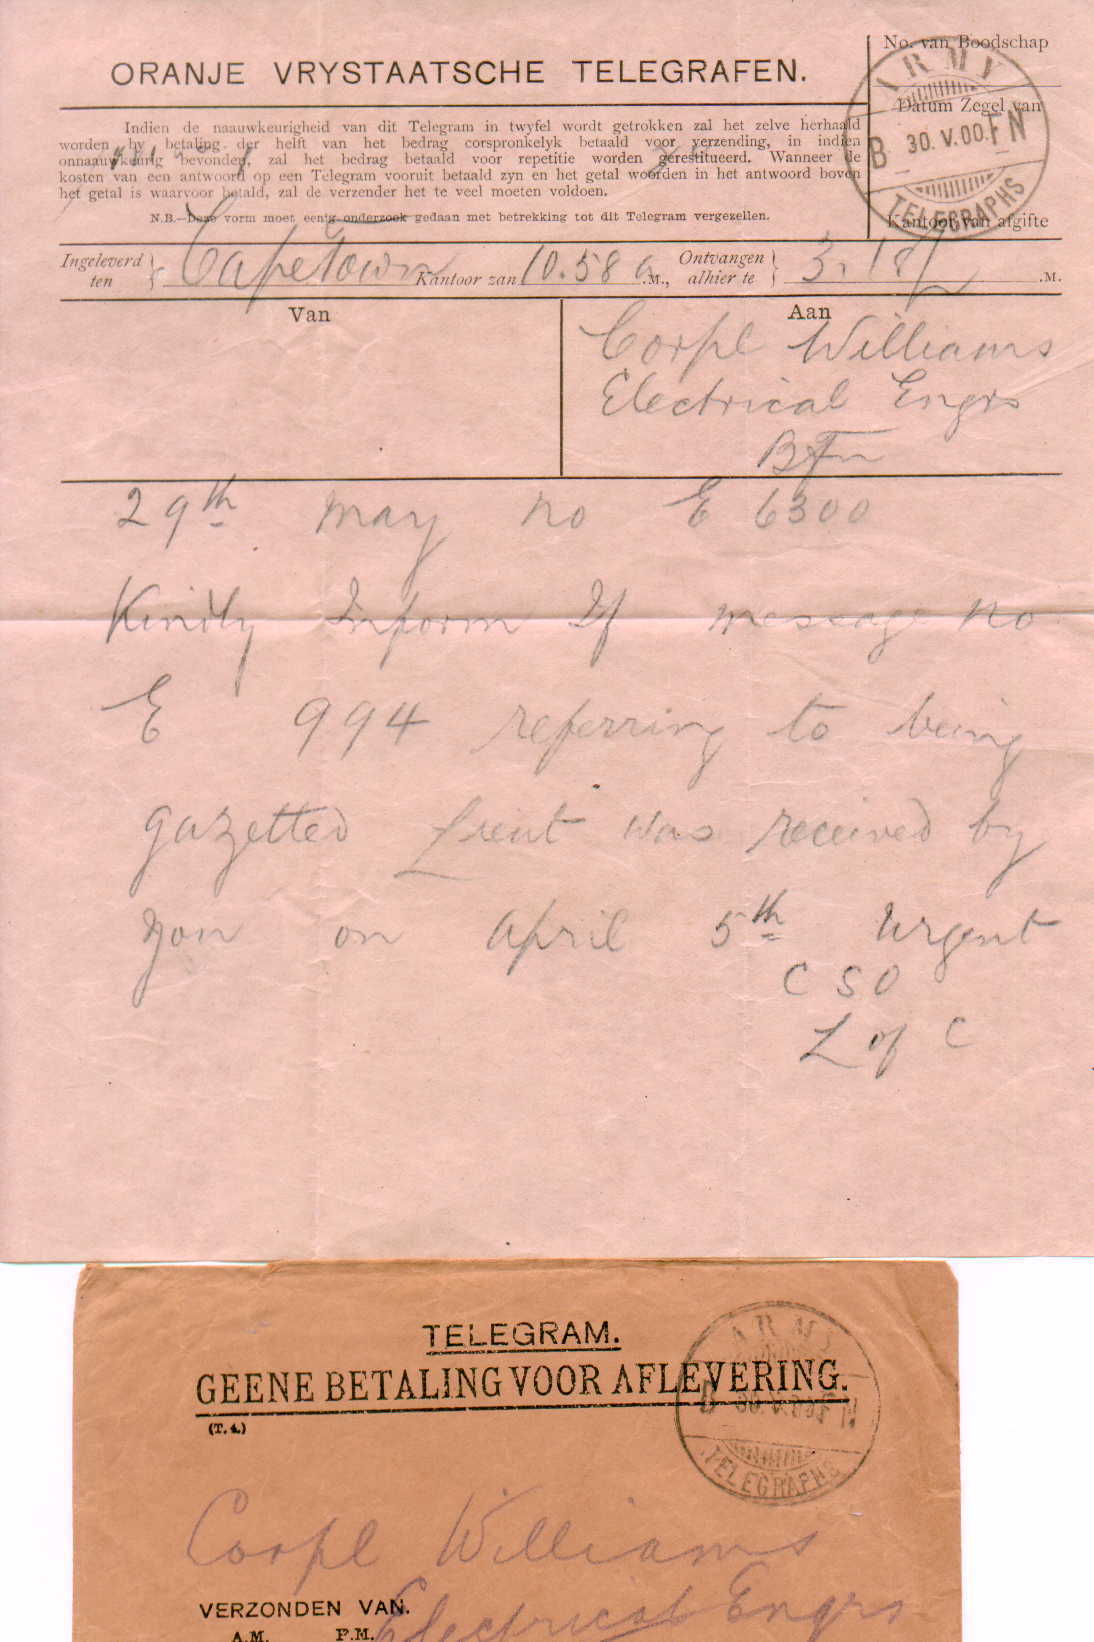 ORANJE VRYSTAATSCHE TELEGRAFEN.
No. van Boodschap
Datum Zegel van
Kantoor van afgifte
ARMY
B 30.V.00. FN
TELEGRAPHS
Indien de naauwkeurigheid van dit Telegram in twyfel wordt getrokken zal het zelve herhaald
worden by betaling der helft van het bedrag corspronkelyk betaald voor verzending, in indien
onnaauwkeurig bevonden, zal het bedrag betaald voor repetitie worden gerestitueerd. Wanneer de
kosten van een antwoord op een Telegram vooruit betaald zyn en het getal woorden in het antwoord boven
het getal is waarvoor betald, zal de verzender het te veel moeten voldoen.
N.B.—Deze vorm moet eenig onderzoek gedaan met betrekking tot dit Telegram vergezellen.
Ingeleverd ten } Capetown Kantoor zan 10.58 a .M., Ontvangen alhier te } 3.18 p .M.
Van
Aan
Corpl Williams
Electrical Engrs
Bfn
29th May no E 6300
Kindly Inform If message no
E 994 referring to being
gazetted Lieut was received by
you on April 5th Urgent
C S O
L of C
TELEGRAM.
GEENE BETALING VOOR AFLEVERING.
(T. 4.)
ARMY
B 30.V.00 FN
TELEGRAPHS
Corpl Williams
VERZONDEN VAN.
Electrical Engrs
A.M. P.M.